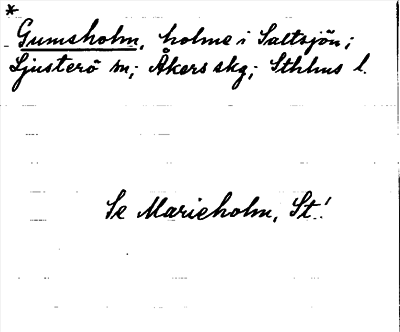 *
Gumsholm, holme i Saltsjön;
Ljusterö sn; Åkers skg; Sthlms l.
Se Marieholm, St.!